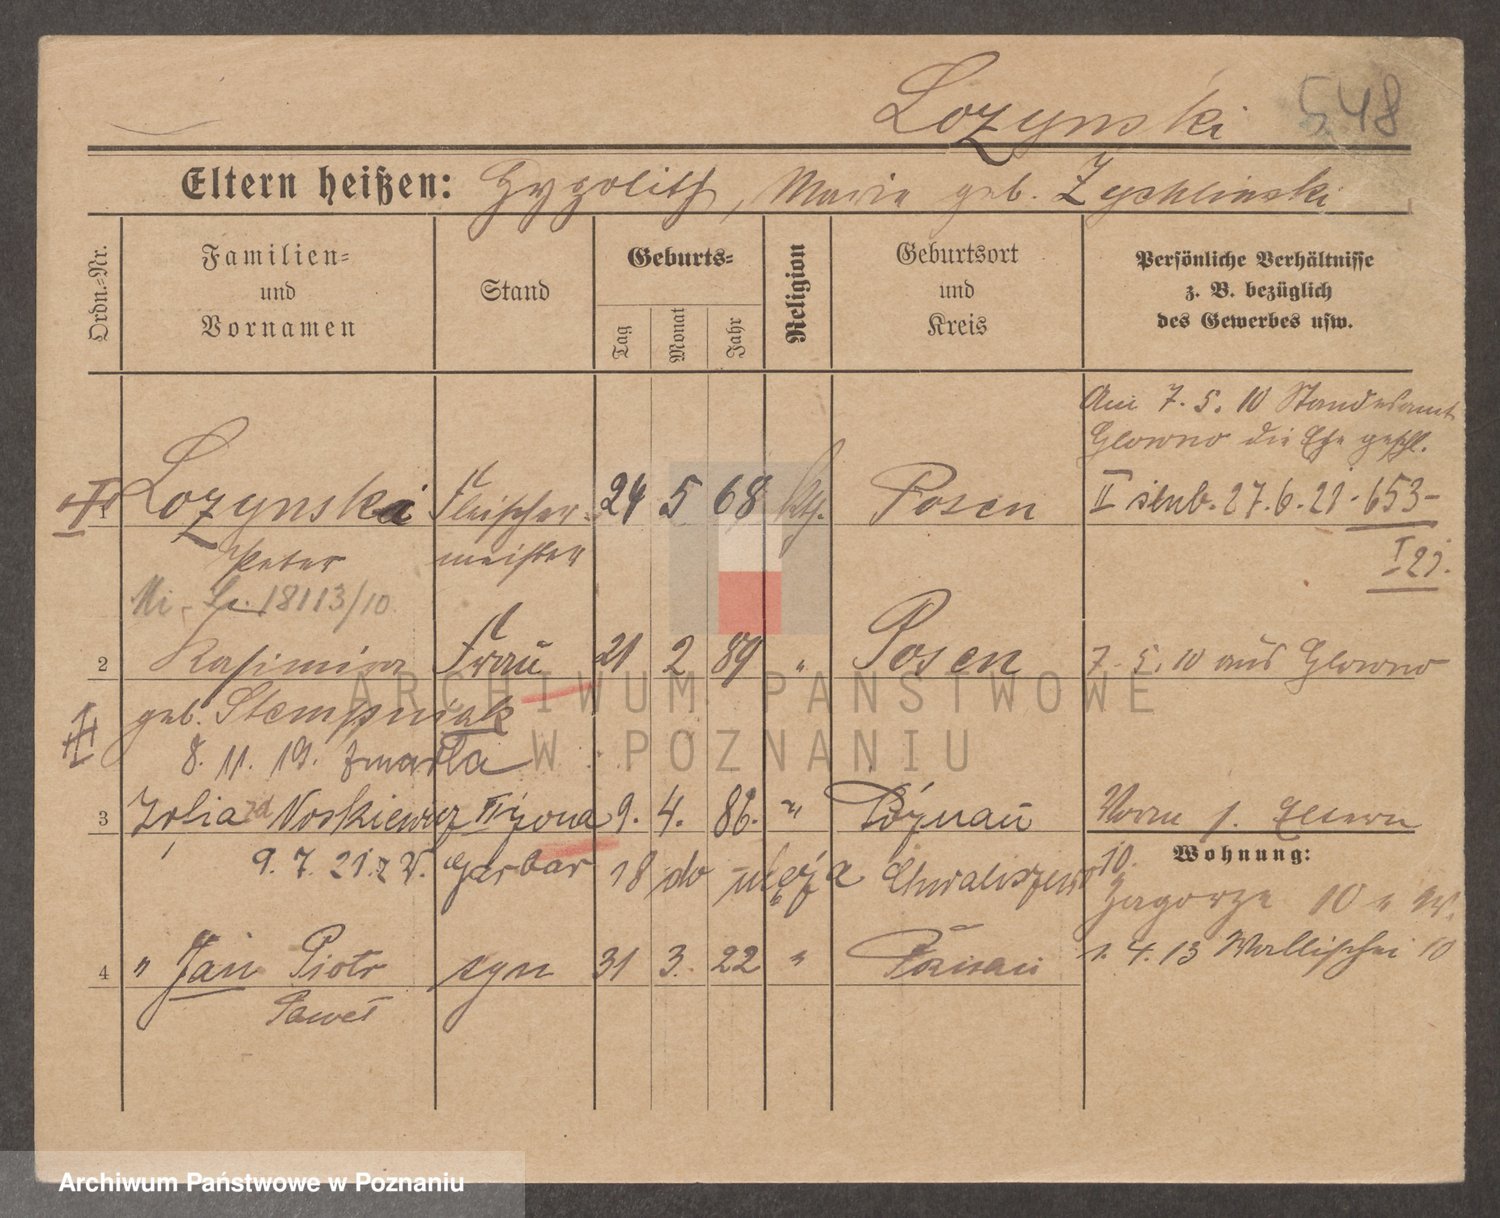 Lozynski 548
Eltern heißen: Hypolith, Marie geb. Zychlinski
Ordn.-Nr.
Familien-
und
Vornamen
Stand
Geburts-
Tag
Monat
Jahr
Religion
Geburtsort
und
Kreis
Persönliche Verhältnisse
z. B. bezüglich
des Gewerbes usw.
Am 7. 5. 10 Standesamt
Glowno die Ehe geschl.
1 Lozynski Fleischer- 24 5 68 kth. Posen II slub. 27.6.21. 653-
Peter meister I 21.
18113/10.
2 Kasimira Frau 21 2 89 " Posen 7. 5. 10 aus Glowno
geb. Stempniak
8. 11. 19. zmarła
3 Zofia Noskiewicz II żona 9. 4. 86. " Poznań Vorm s. Eltern
Wohnung:
9. 7. 21. z W. Garbar 18 do Chwaliszewo 10.
Zagorze 10
4 " Jan Piotr syn 31 3. 22 " Poznań 1. 4. 13 Wallischei 10
Paweł
ARCHIWUM PAŃSTWOWE
W POZNANIU
Archiwum Państwowe w Poznaniu